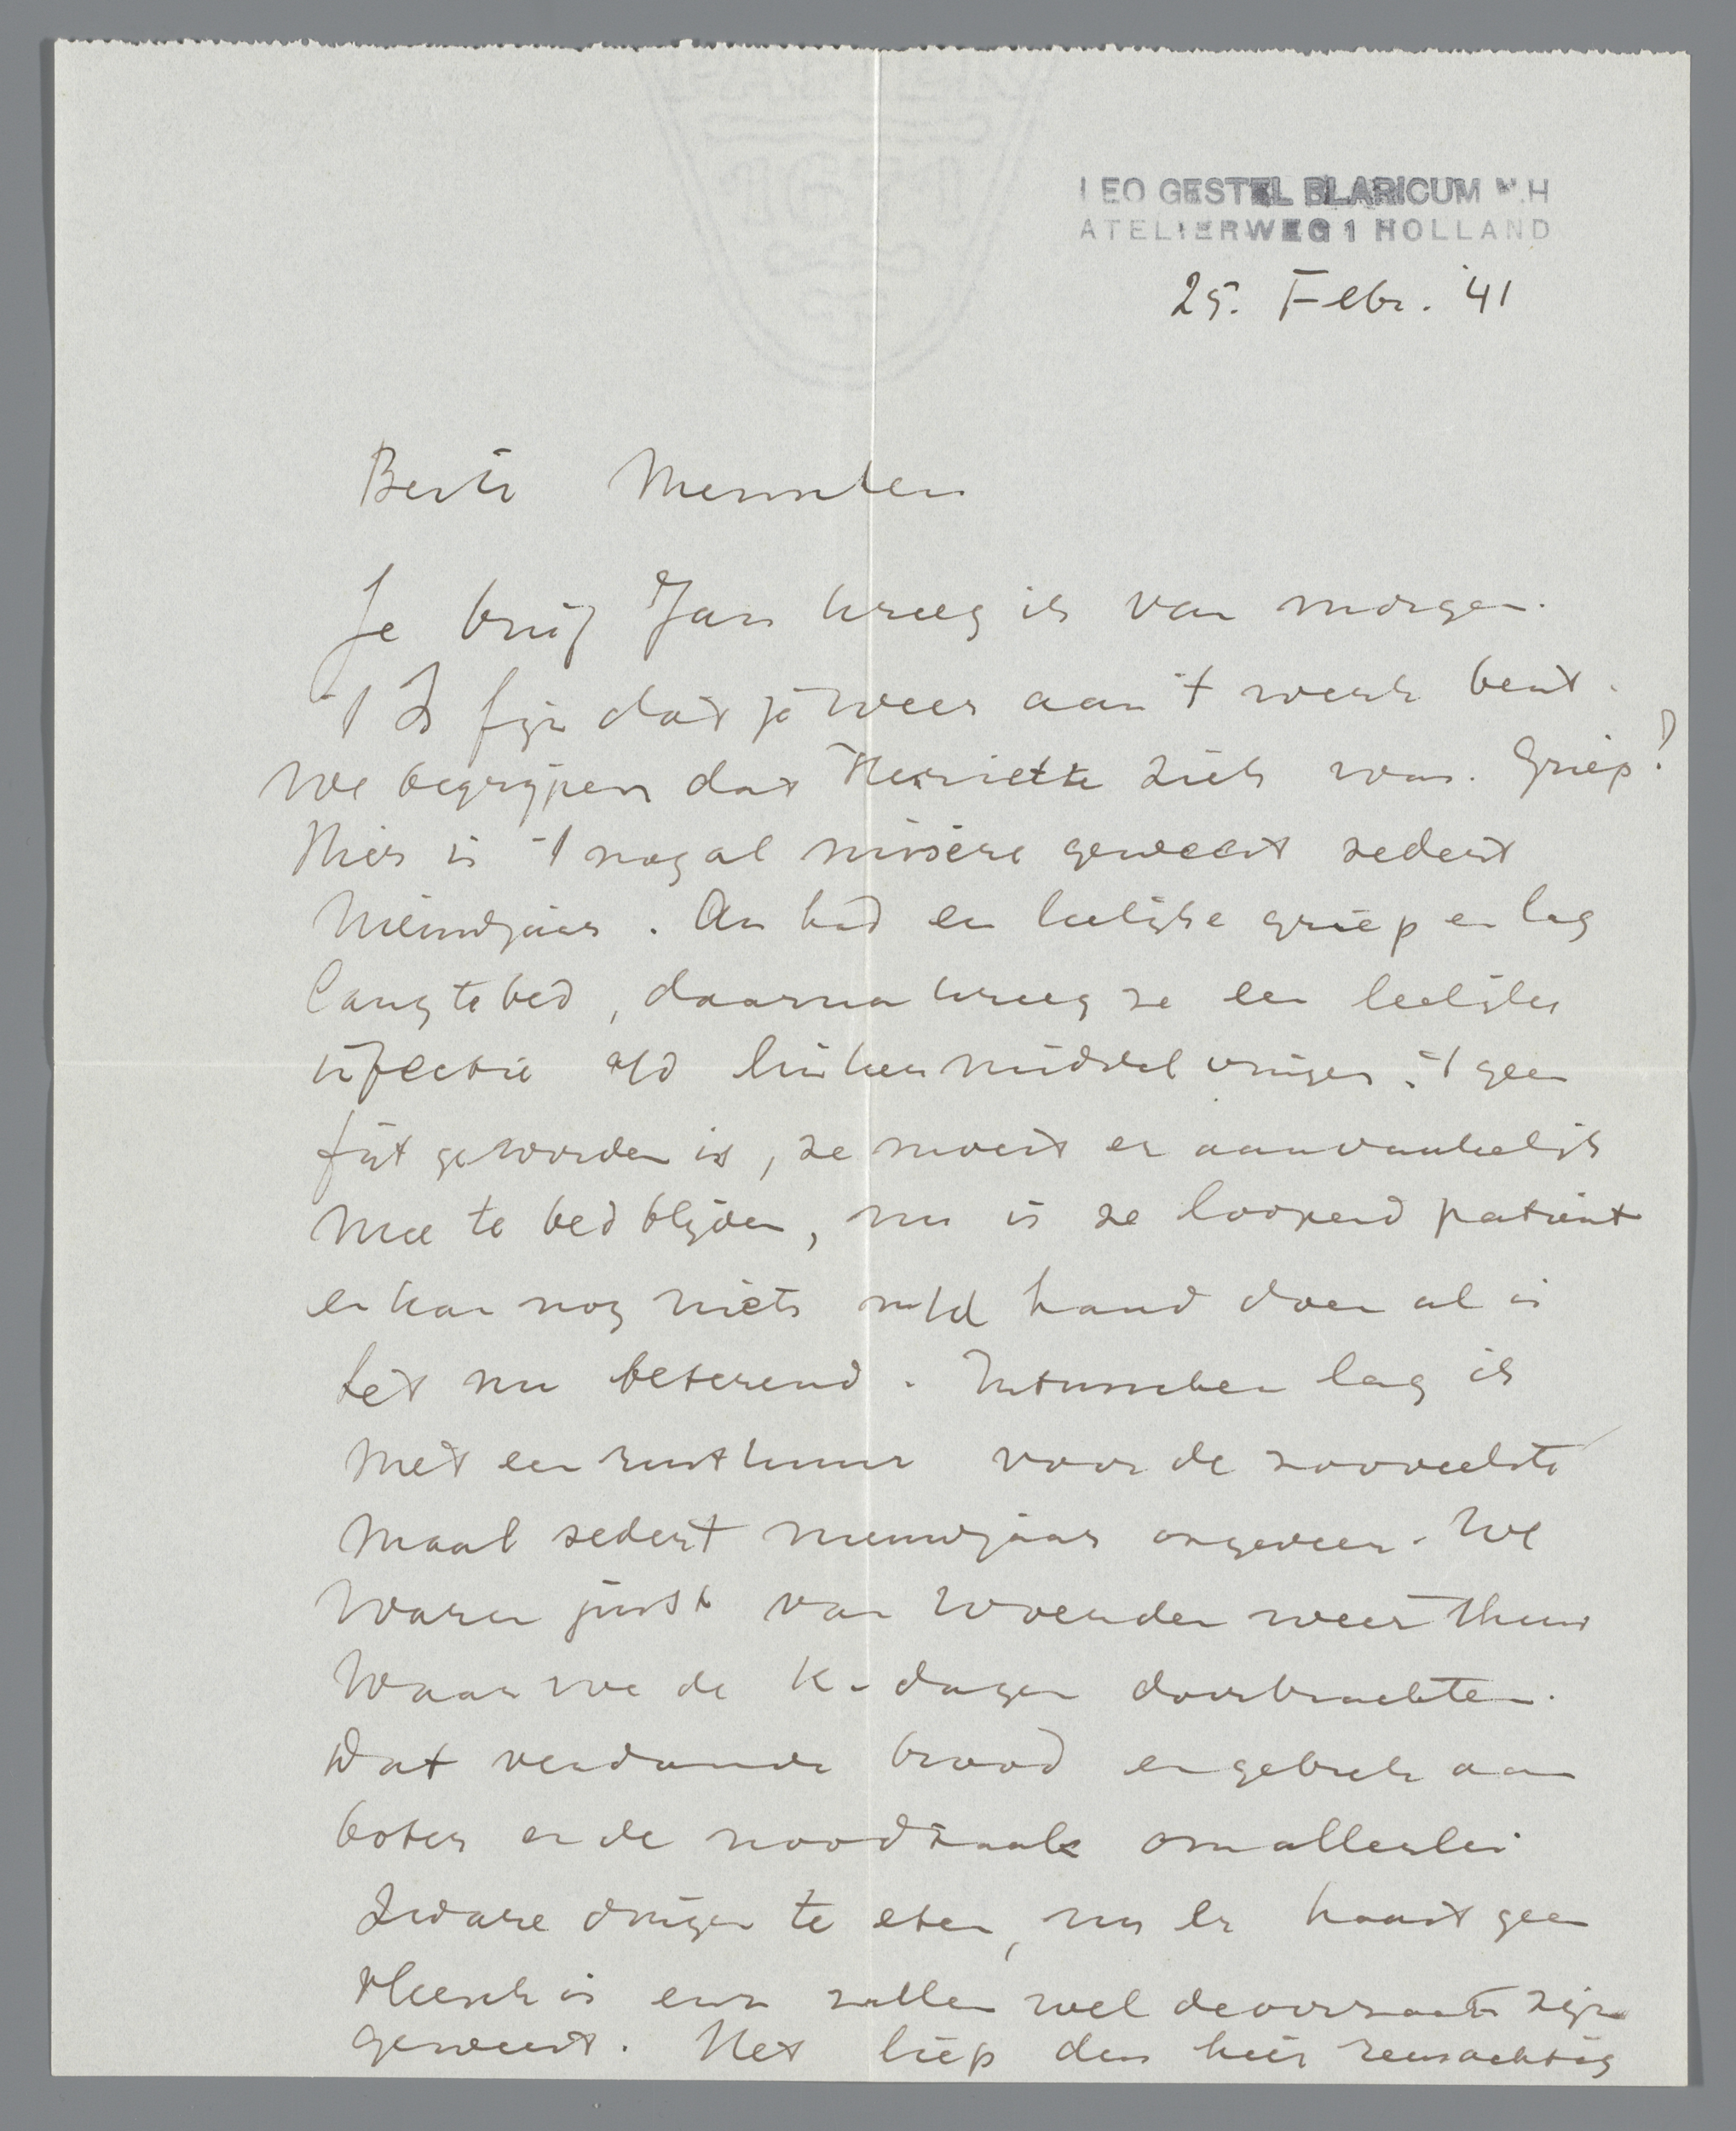 LEO GESTEL BLARICUM N.H
ATELIERWEG 1 HOLLAND
25. Febr. '41
Beste Menschen
Je brief Jan kreeg ik van morgen.
't Is fijn dat je weer aan 't werk bent.
We begrijpen dat Henriette ziek was. Griep?
Hier is 't nogal misère geweest sedert
Nieuwjaar. An had en leelijke griep en lag
lang te bed, daarna kreeg ze een leelijke
infectie a/d linken middel vinger. 't geen
fijt geworden is, ze moest er aanvankelijk
mee te bed blijven, nu is ze loopend patient
en kan nog niets m/d hand doen al is
het nu beterend. Intusschen lag ik
met een rustkuur voor de zooveelste
maal sedert nieuwjaar ongeveer. We
waren juist van Woerden weer thuis
waar we de K. dagen doorbrachten.
Dat verdomde brood en gebrek aan
boter en de noodzaak om allerlei
zware dingen te eten, nu er haast geen
vleesch is enz zullen wel de oorzaak zijn
geweest. Het liep dus hier